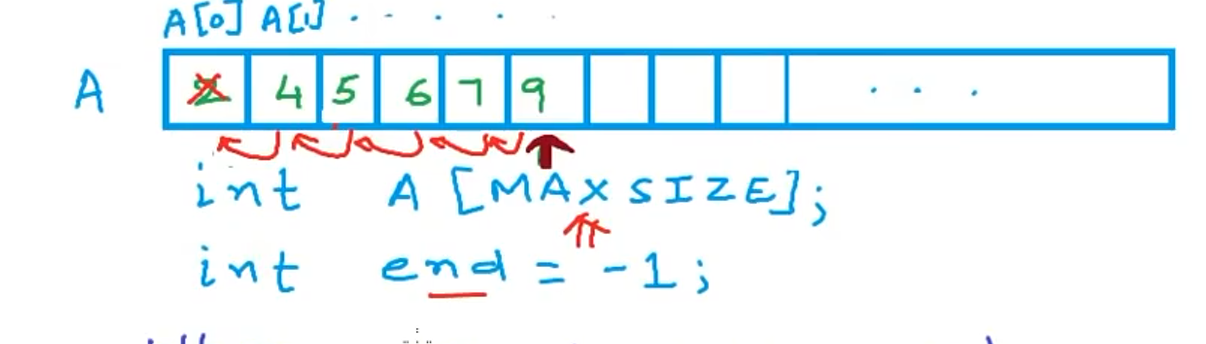 A[0] A[1] . . . . .
A 2 4 5 6 7 9 . . .
int A [MAXSIZE];
int end = -1;